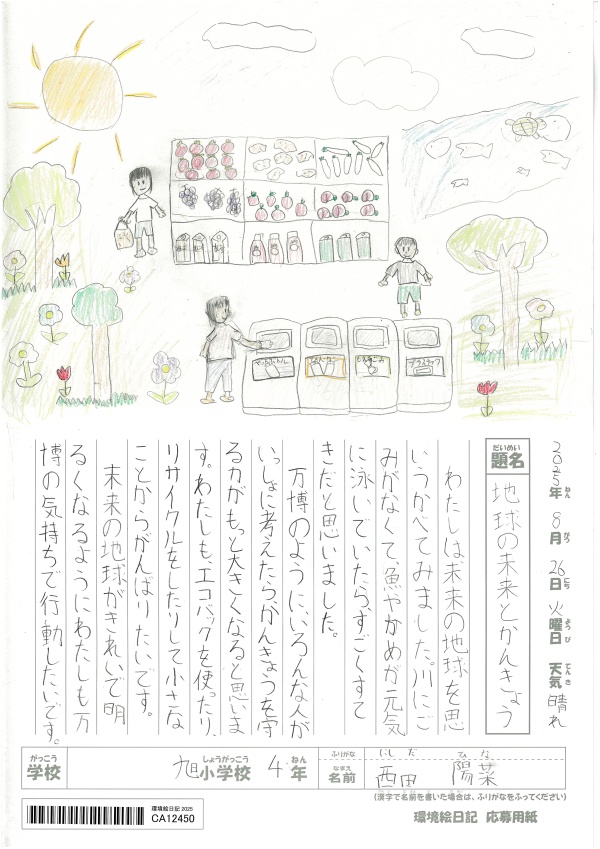 2025年 8月 26日 火曜日 天気 晴れ
ねん がつ にち ようび てんき
だいめい
題名
地球の未来とかんきょう
わたしは未来の地球を思
いうかべてみました。川にご
みがなくて、魚やかめが元気
に泳いでいたら、すごくすて
きだと思いました。
万博のように、いろんな人が
いっしょに考えたら、かんきょうを守
る力がもっと大きくなると思いま
す。わたしも、エコバックを使ったり、
リサイクルをしたりして小さな
ことからがんばりたいです。
未来の地球がきれいで明
るくなるようにわたしも万
博の気持ちで行動したいです。
ペットボトル
もえるごみ
プラスチック
がっこう しょうがっこう ねん
学校 旭小学校 4年
ふりがな にしだ ひな
なまえ
名前 西田 陽菜
(漢字で名前を書いた場合は、ふりがなをふってください)
環境絵日記 2025
CA12450
環境絵日記 応募用紙